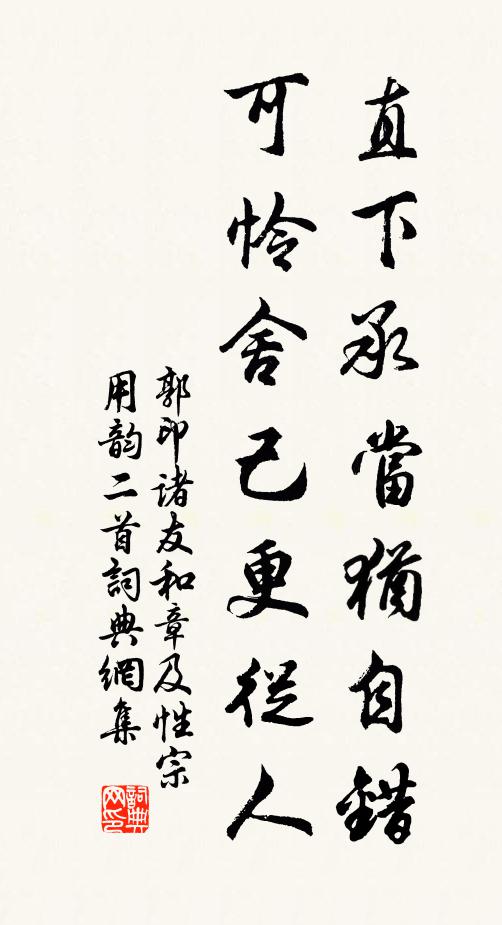 直下承當猶自錯
可怜舍己更從人
郭印諸友和章及性宗
用韵二首詞典網集
詞典网印